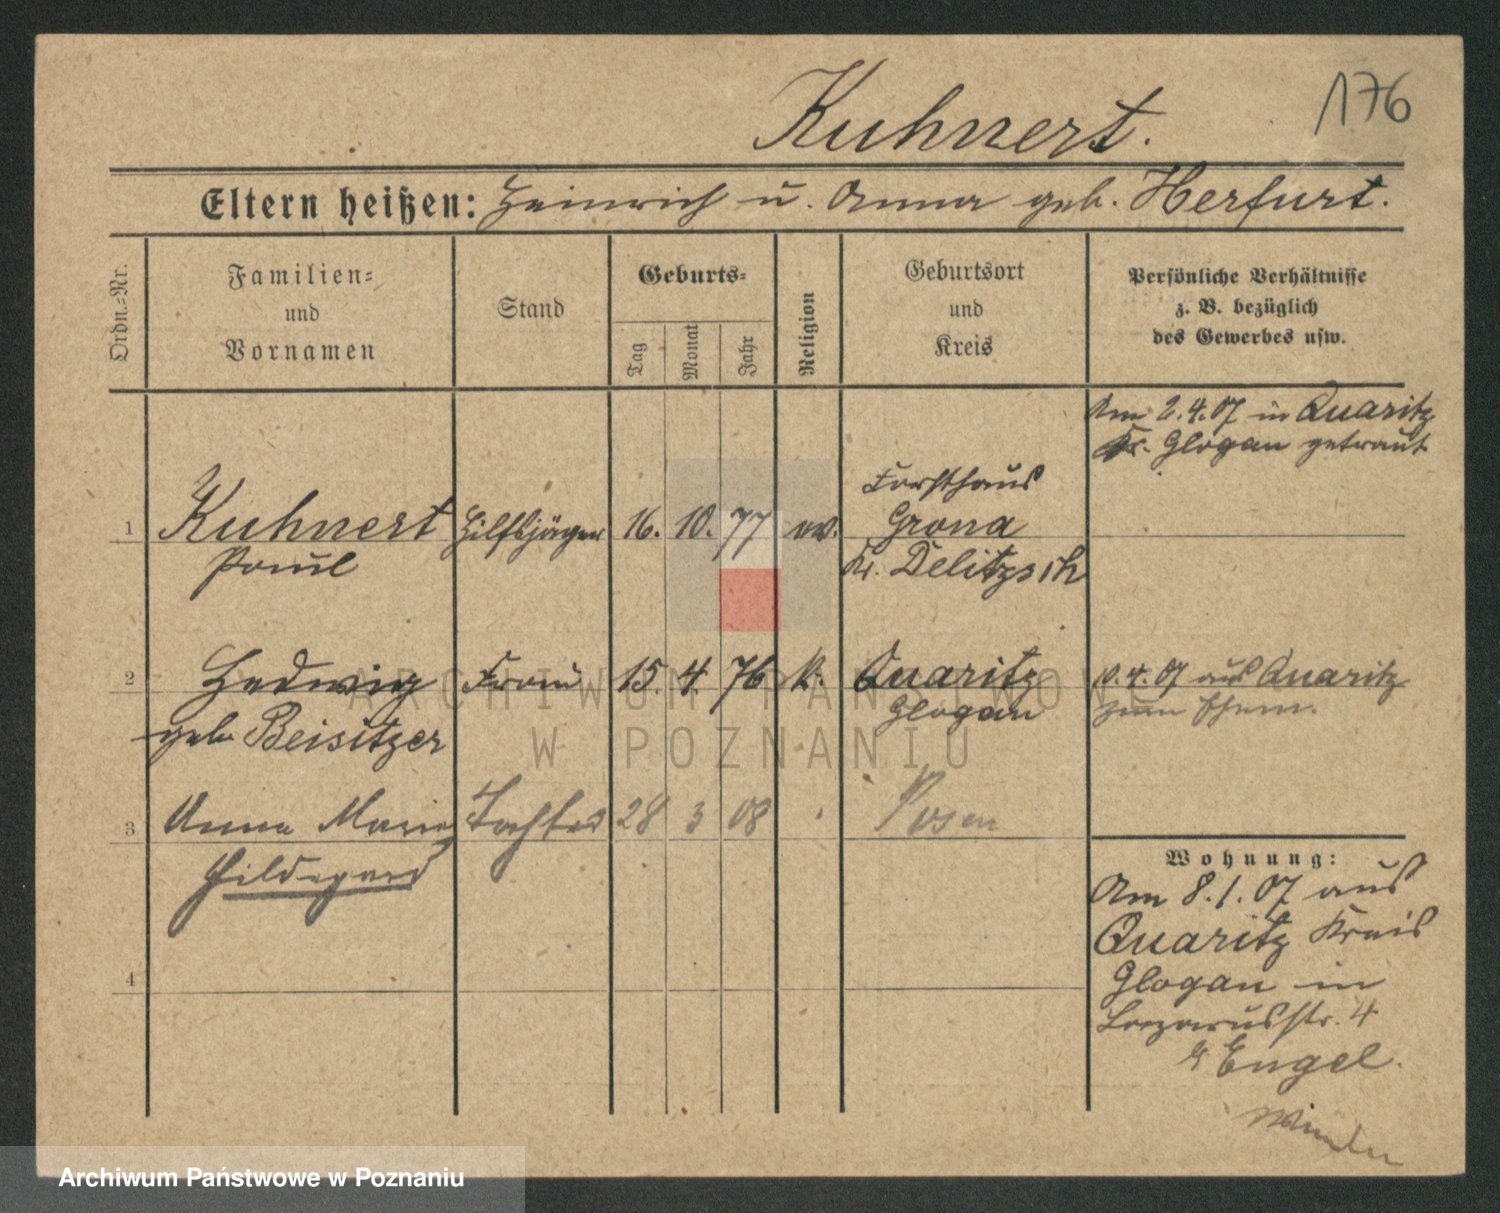 176
Kuhnert.
Eltern heißen: Heinrich u. Anna geb. Herfurt.
Ordn.-Nr.
Familien-
und
Vornamen
Stand
Geburts-
Tag
Monat
Jahr
Religion
Geburtsort
und
Kreis
Persönliche Verhältnisse
z. B. bezüglich
des Gewerbes usw.
Am 2.4.07 in Quaritz
Kr. Glogau getraut
Forsthaus
1 Kuhnert Hilfsjäger 16. 10. 77 ev. Grona
Paul Kr. Delitzsch
2 Hedwig Frau 15. 4. 76 k. Quaritz 4. 07 aus Quaritz
geb. Beisitzer Glogau zum Ehem.
3 Anna Marie Tochter 28 3 08 Posen
Hildegard
4
Wohnung:
Am 8.1.07 aus
Quaritz Kreis
Glogau in
Lazarusstr. 4
Engel.
ARCHIWUM PAŃSTWOWE
W POZNANIU
Archiwum Państwowe w Poznaniu